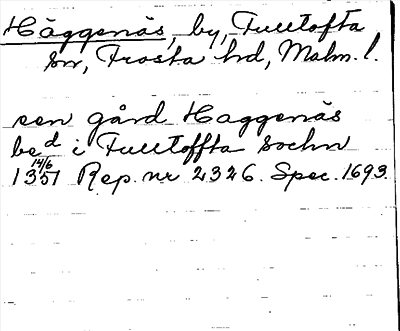 Häggenäs, by, Fulltofta
sn, Frosta hd, Malm. l.
een gård Haggenäs
bed i Fulltoffta sochn
14/6 1357 Rep. nr 2326. Spec. 1693.